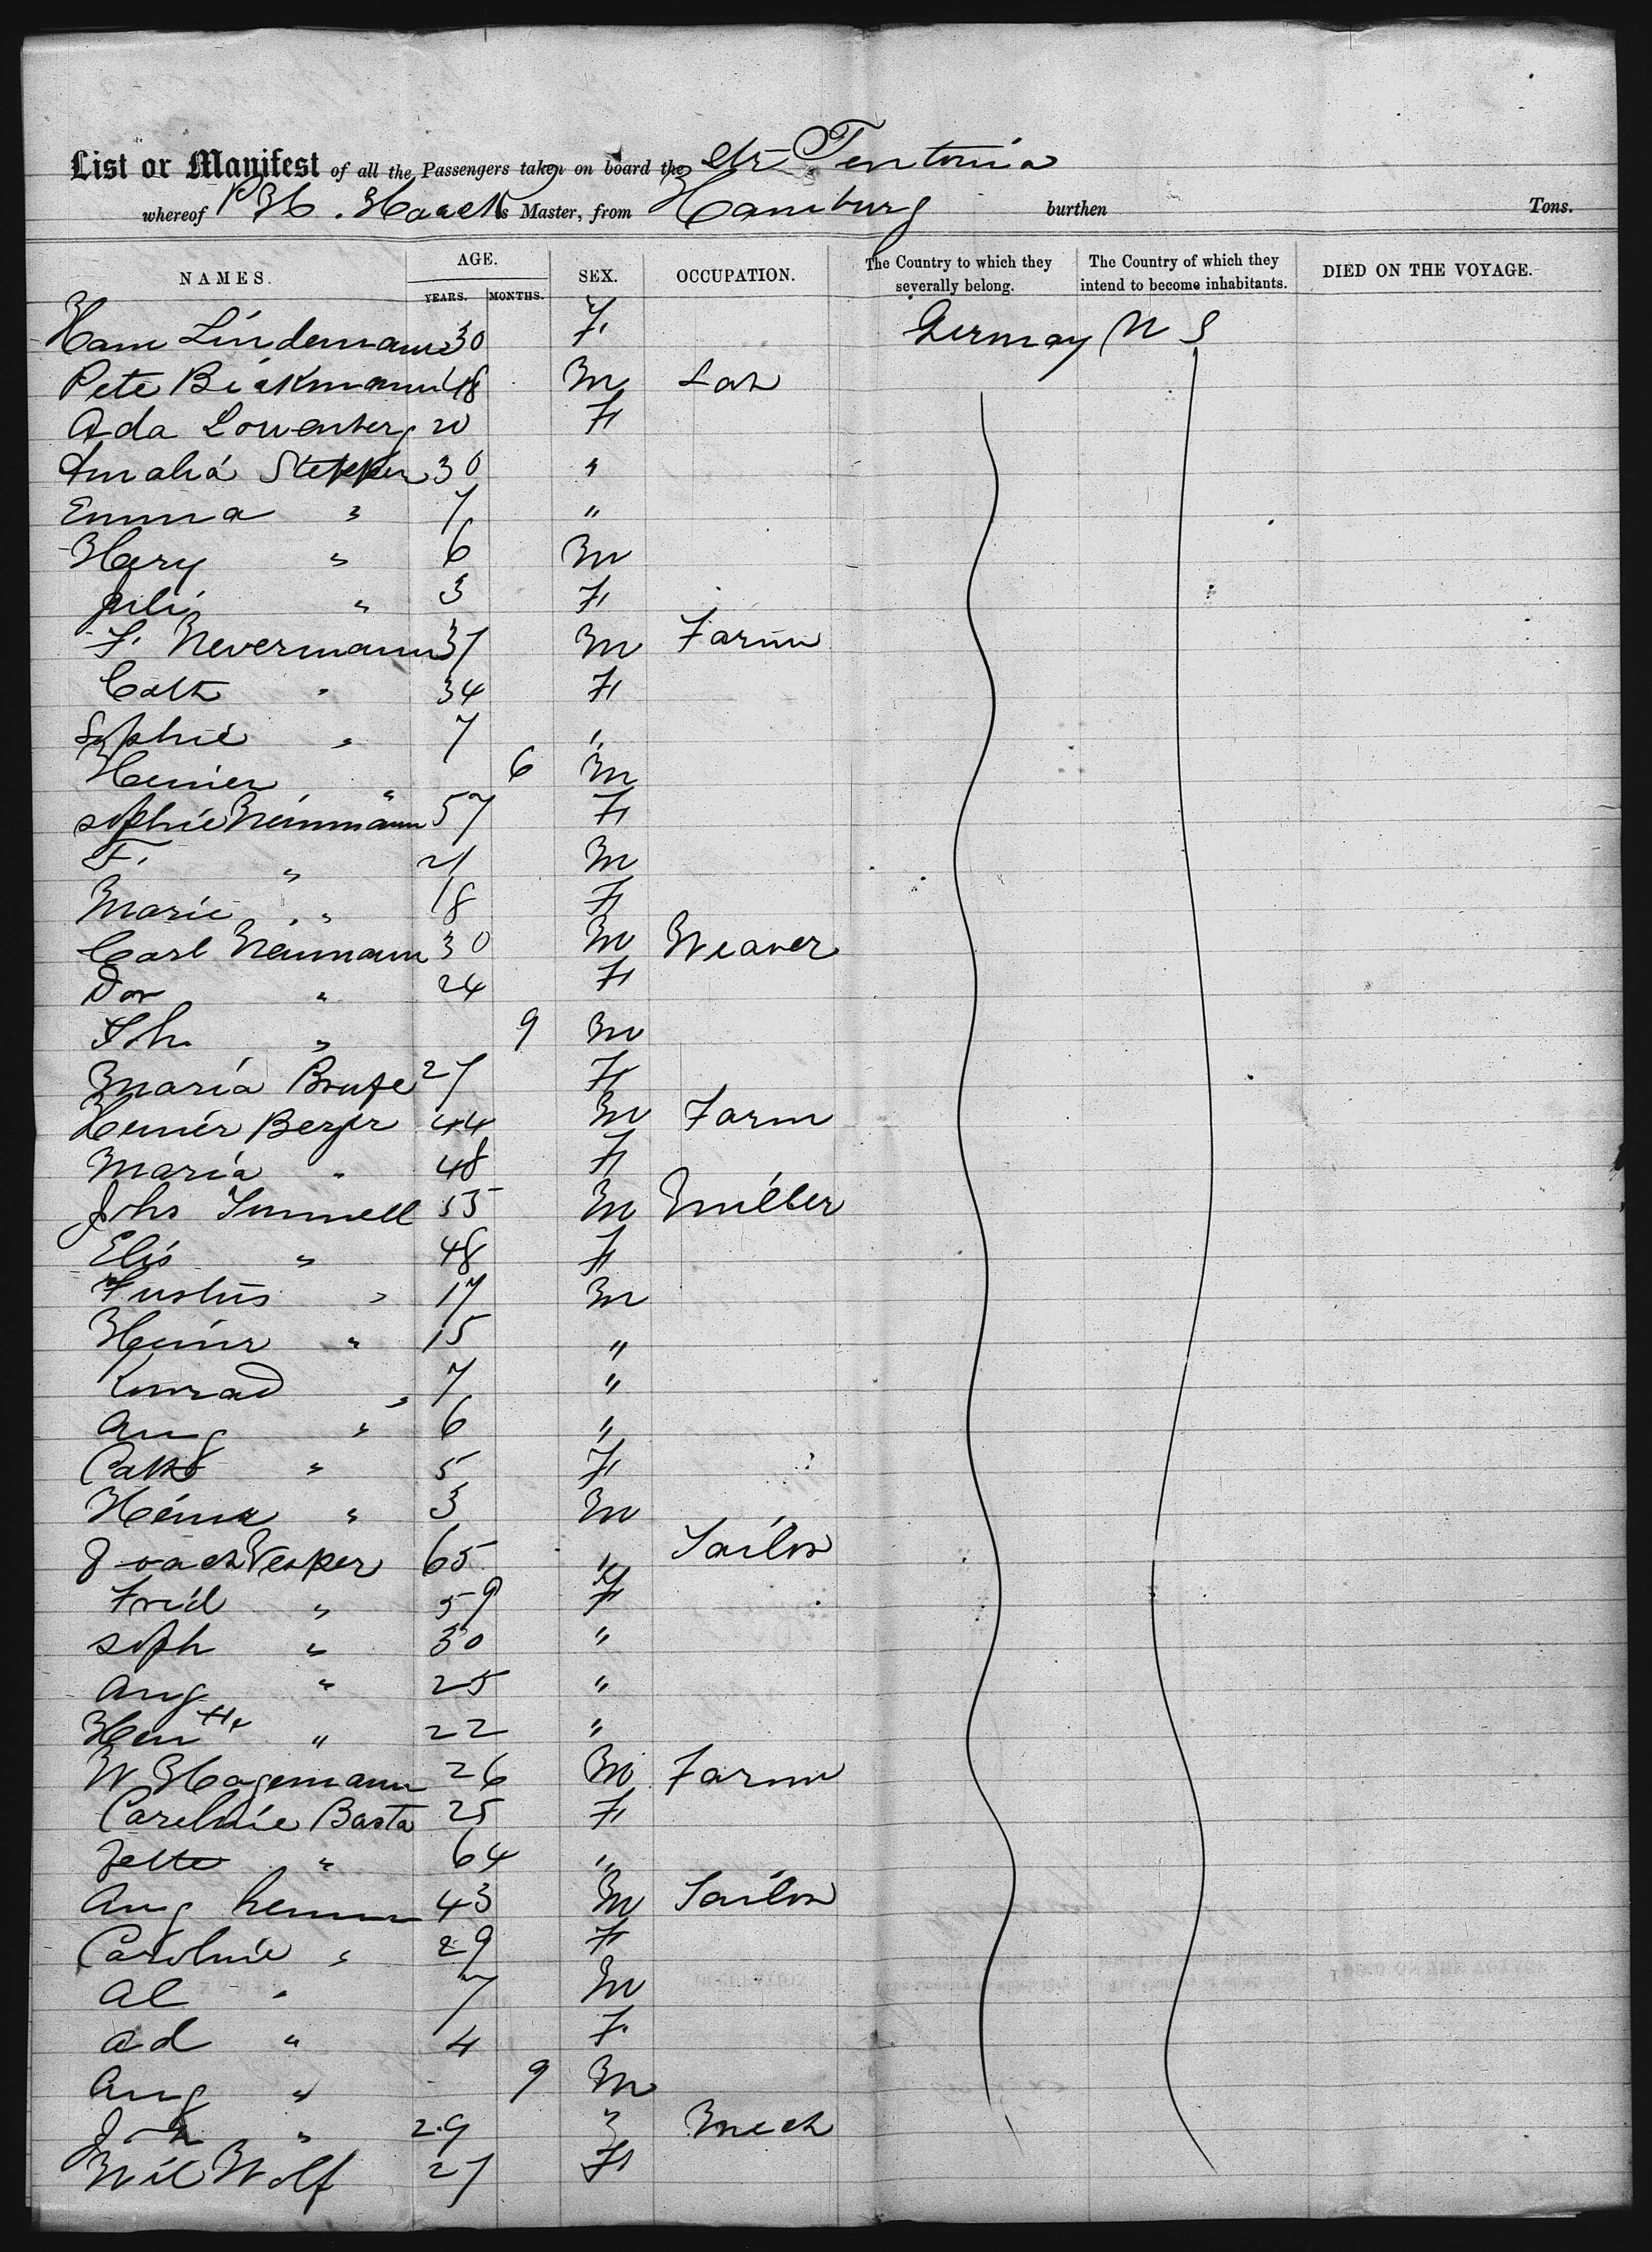 List or Manifest of all the Passengers taken on board the Str Teutonia
whereof H. Haack is Master, from Hamburg burthen Tons.
NAMES. AGE. YEARS. MONTHS. SEX. OCCUPATION. The Country to which they severally belong. The Country of which they intend to become inhabitants. DIED ON THE VOYAGE.
Ham Lindemann 30 F. Germay U S
Pete Biekmann 48 M Lab
Ada Lowenberg 20 F
Amalia Stekker 30 "
Emma " 7 "
Hary " 6 M
Juli " 3 F
F. Nevermann 37 M Farm
Cath " 34 F
Sophie " 7 "
Heinier " 6 M
Sophie Neinmann 57 F
F. " 21 M
Marie " 18 F
Carl Neumann 30 M Weaver
Dor " 24 F
Joh " 9 M
Maria 27 F
Heinier Berger 44 M Farm
Maria " 48 F
Johs 55 M Miller
Elis " 48 F
Justus " 17 M
Heinr " 15 "
Konrad " 7 "
Aug " 6 "
Cath " 5 F
Heinr " 3 M
Joach Vesper 65 " Tailor
Frid " 59 F
Soph " 30 "
Aug " 25 "
Hentte " 22 "
W Hagemann 26 M Farm
Carelnie Basta 25 F
Jette " 64 "
Aug 43 M Tailor
Carolnie " 29 F
Al " 7 M
Ad " 4 F.
Aug " 9 M
" 29 " Mech
Wil Wolf 27 F